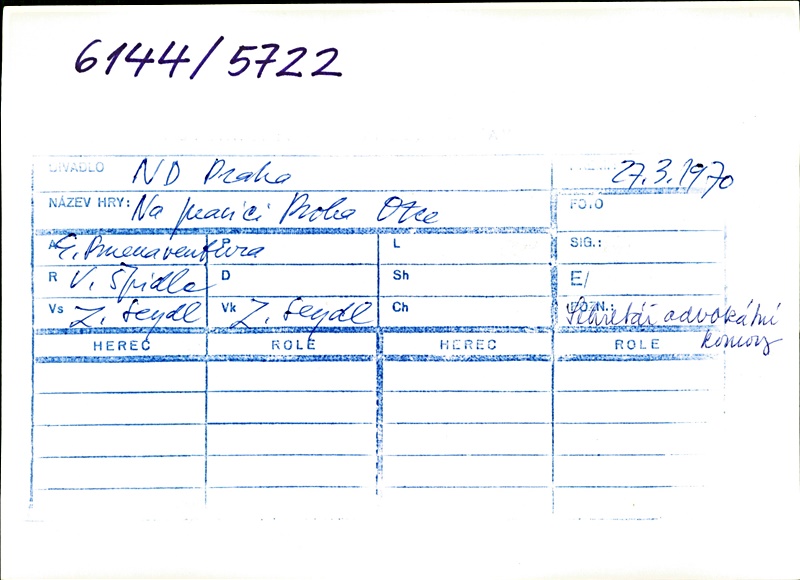 6144/5722
DIVADLO ND Praha 27.3.1970
NÁZEV HRY: Na pravici Boha Otce FOTO
A E. Buenaventura P L SIG.:
R V. Špidla D Sh E/
Vs Z. Seydl Vk Z. Seydl Ch POZN.: Sekretář advokátní
komory
HEREC ROLE HEREC ROLE